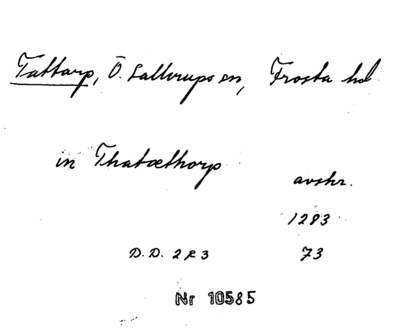 Tattarp, Ö. Sallerups sn, Frosta hd
in Thatæthorp
avskr.
1283
D.D. 2 R 3 73
Nr 10585